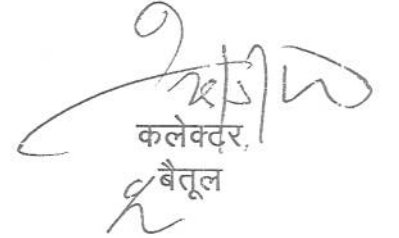 कलेक्टर,
बैतूल